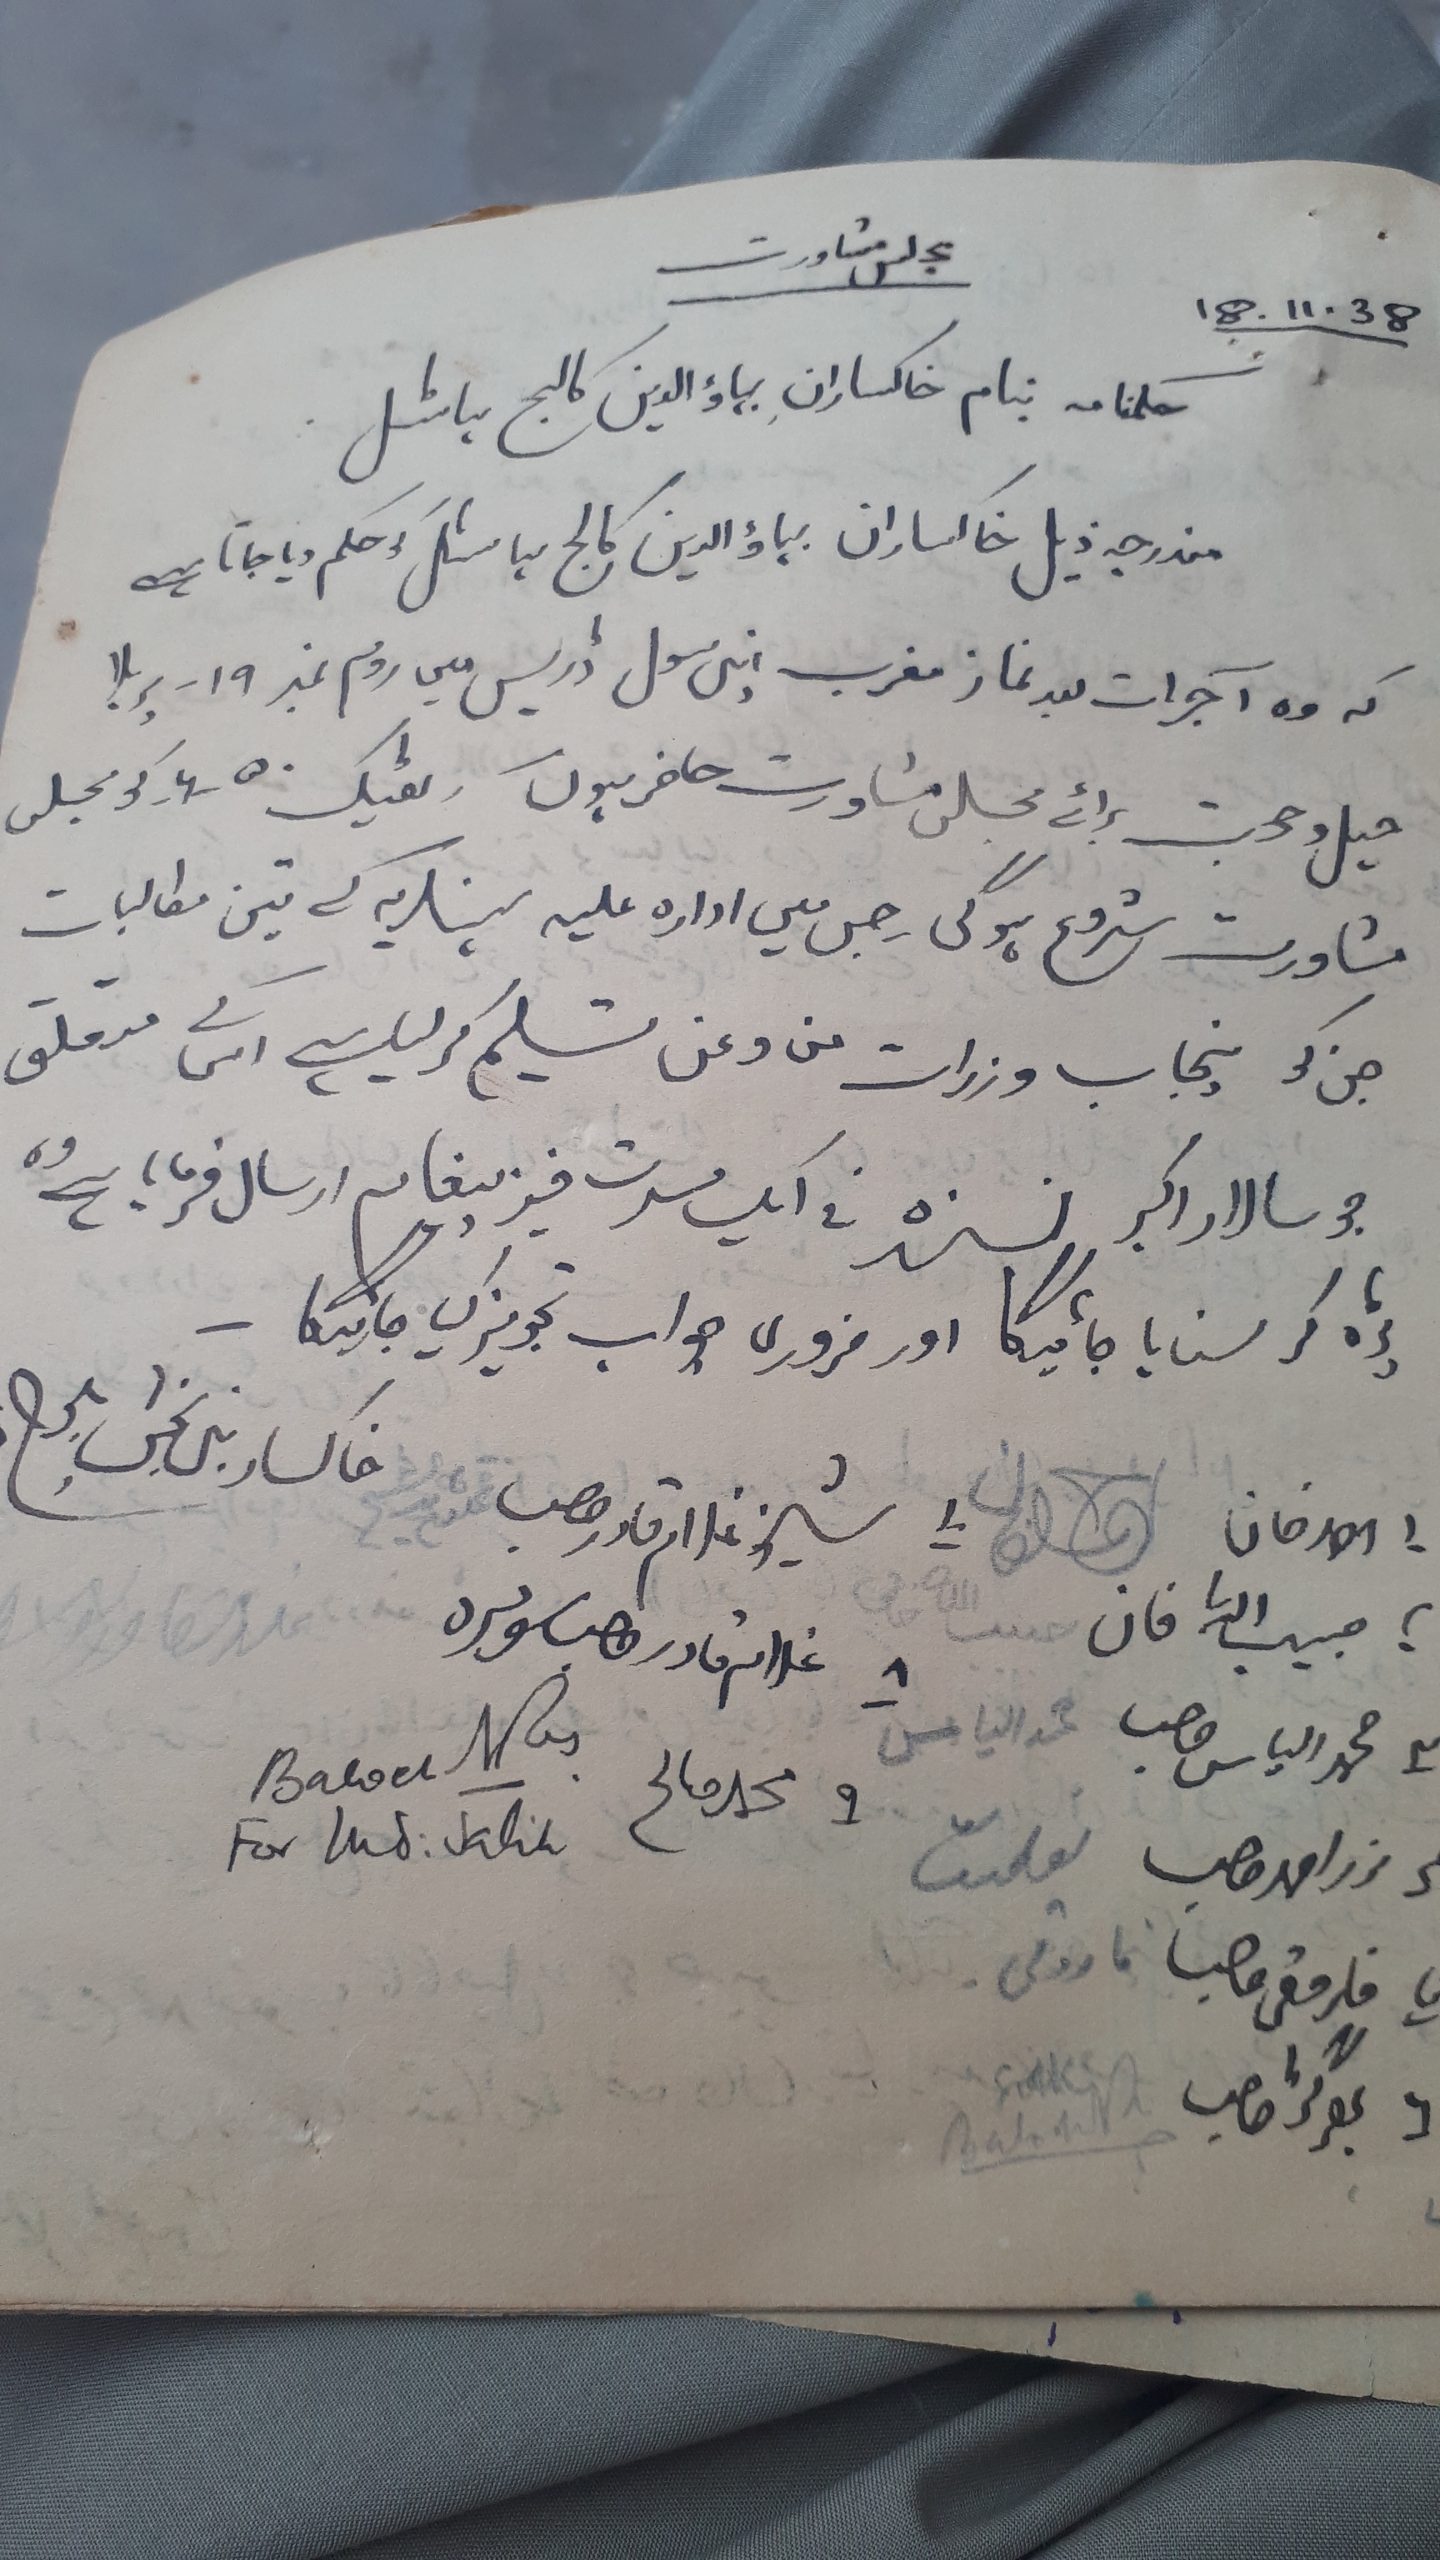 مجلس مشاورت
18.11.38
حکمنامہ بنام خاکساران بہاؤالدین کالیج ہاسٹل
مندرجہ ذیل خاکساران بہاؤالدین کالج ہاسٹل کو حکم دیا جاتا ہے
کہ وہ آج رات بعد نماز مغرب اپنی سول ڈریس میں روم نمبر ۱۹ - پر بلا
حیل و حجت برائے مجلس مشاورت حاضر ہوں ٹھیک کو مجلس
مشاورت شروع ہوگی جس میں ادارہ علیہ ہندیہ کے تین مطالبات
جن کو پنجاب وزرات من و عن تسلیم کر لیا ہے اسکے متعلق
جو سالار اکبر نے ایک مسرت خیز پیغام ارسال فرمایا ہے وہ
پڑہ کر سنایا جائیگا اور ضروری جواب تجویز کیا جائیگا -
خاکسار نبی بخش بلوچ
۱ احمد خان
۲ حبیب اللہ خان حبیب اللہ
۳ محمد الیاس صاحب محمد الیاس
۴ نذر احمد صاحب
۵ فاروقی صاحب فاروقی
۶ صاحب
۷ شیخ غلام قادر صاحب
۸ غلام قادر صاحب
۹ محمد صالح
Baloch
For Md: Salih